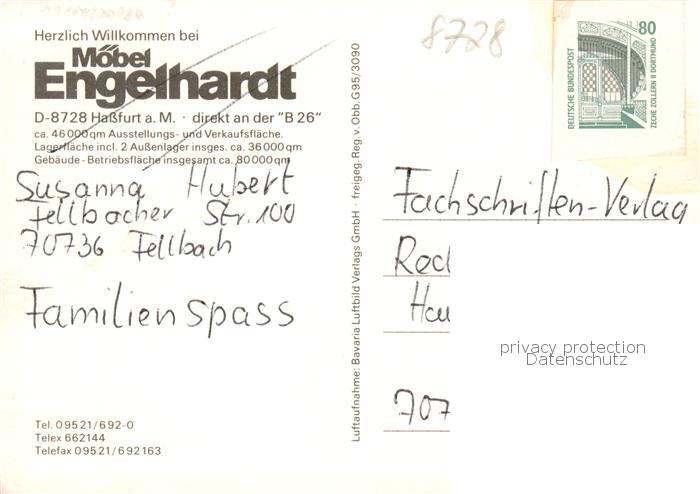 Herzlich Willkommen bei
Möbel
Engelhardt
D-8728 Haßfurt a. M. · direkt an der "B 26"
ca. 46000qm Ausstellungs- und Verkaufsfläche.
Lagerfläche incl. 2 Außenlager insges. ca. 36000qm
Gebäude - Betriebsfläche insgesamt ca. 80000qm
Susanna Hubert
Fellbacher Str. 100
70736 Fellbach
Familienspass
Tel. 09521/692-0
Telex 662144
Telefax 09521/692163
Luftaufnahme: Bavaria Luftbild Verlags GmbH · freigeg. Reg. v. Obb. G95/3090
8728
80
DEUTSCHE BUNDESPOST
ZECHE ZOLLERN II DORTMUND
Fachschriften-Verlag
Red
Hau
707
privacy protection
Datenschutz